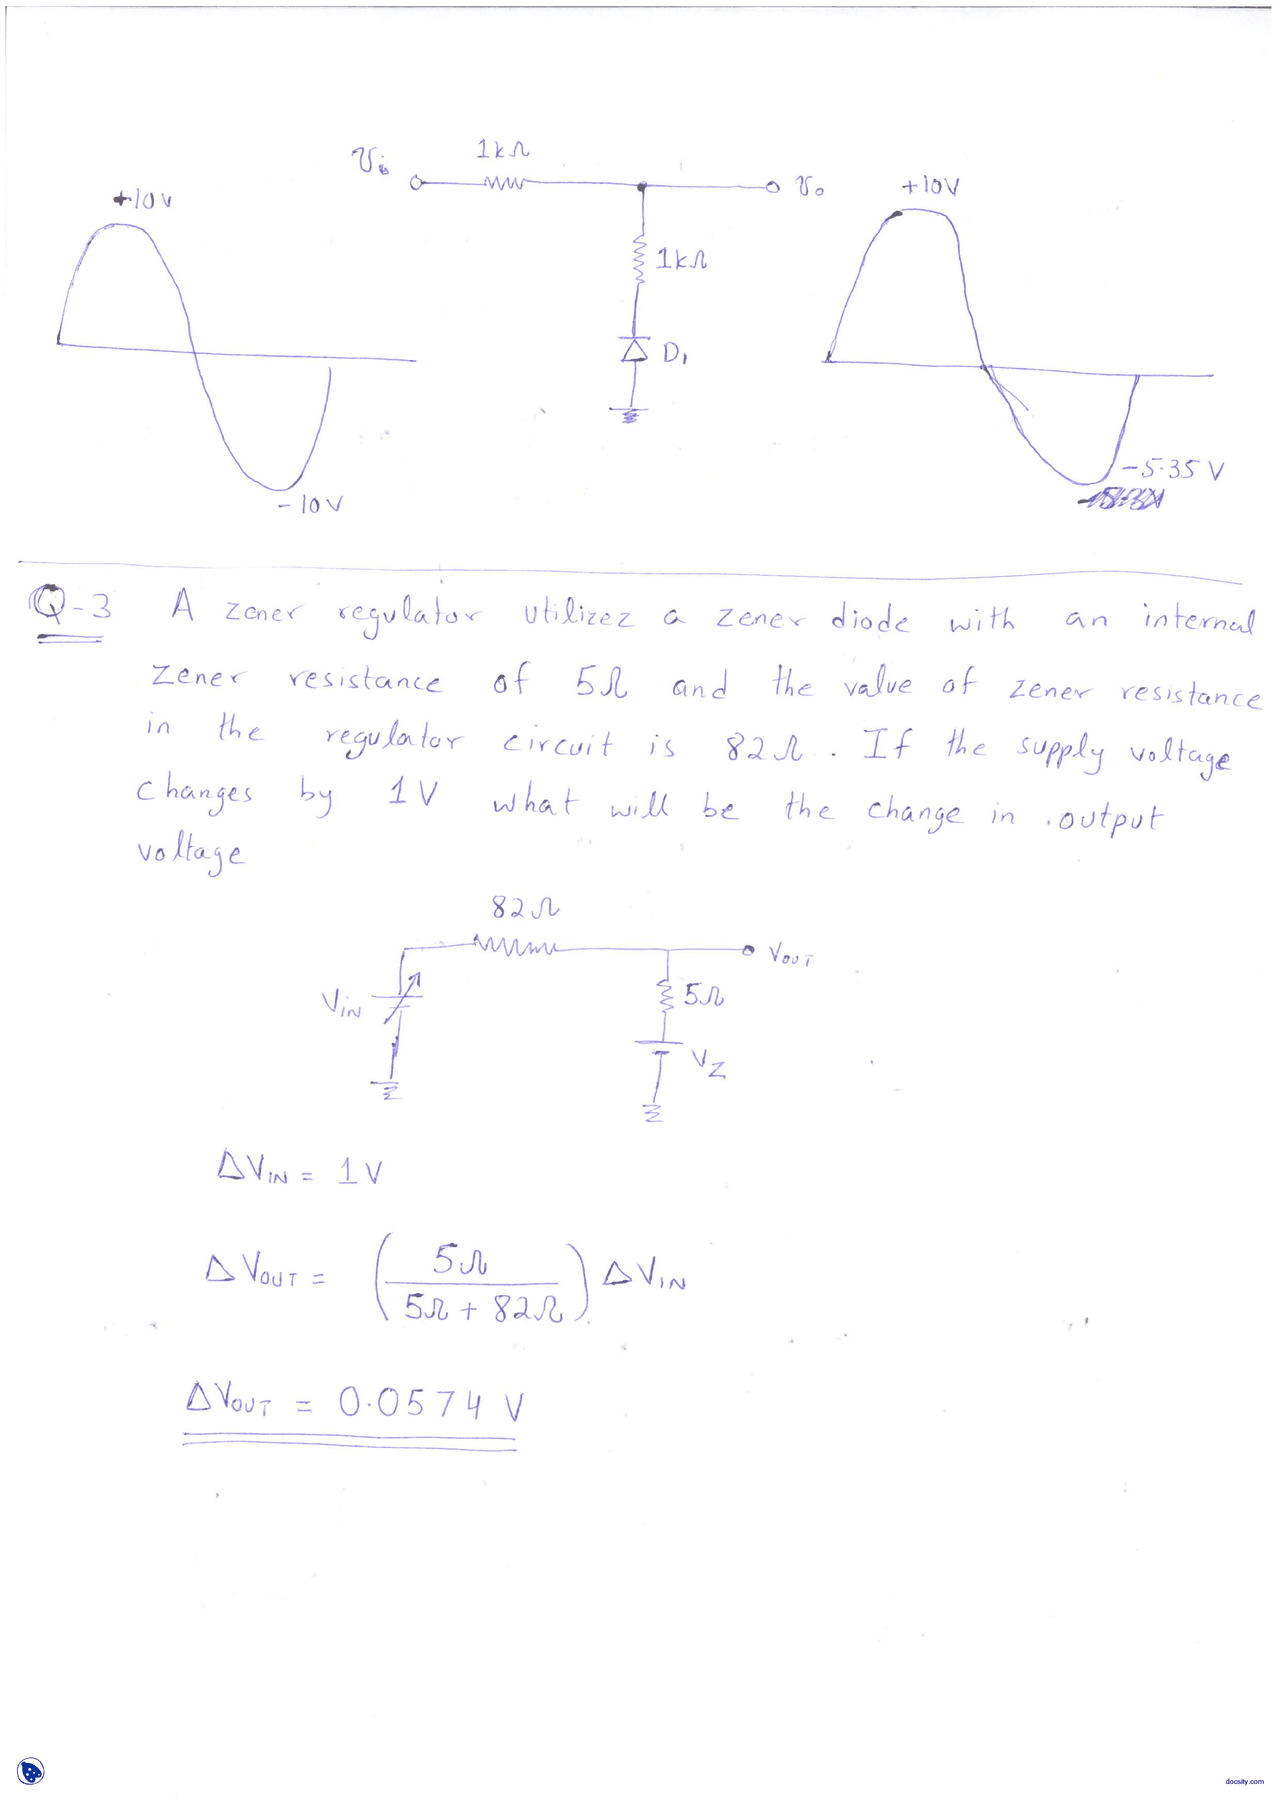 Vi 1kΩ Vo
+10V +10V
1kΩ
D1
-5.35 V
-10V
Q-3 A zener regulator utilizez a zener diode with an internal
zener resistance of 5Ω and the value of zener resistance
in the regulator circuit is 82Ω. If the supply voltage
changes by 1V what will be the change in output
voltage
82Ω
VOUT
VIN 5Ω
VZ
ΔVIN = 1V
ΔVOUT = (5Ω / 5Ω + 82Ω) ΔVIN
ΔVOUT = 0.0574 V
docsity.com